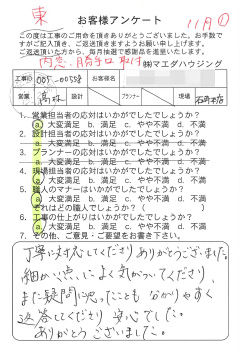 東
11月①
お客様アンケート
この度は工事のご用命を頂きありがとうございました。お手数で
すがご記入頂き、ご返送頂きますようお願い申し上げます。
ご返送頂いた方から、毎月抽選で感謝品を進呈いたします。
内窓、勝手口取付
㈱マエダハウジング
工事ID 005-00558 お客様名
営業 高林 設計 プランナー 現場
1. 営業担当者の応対はいかがでしたでしょうか?
a. 大満足 b. 満足 c. やや不満 d. 不満
2. 設計担当者の応対はいかがでしたでしょうか?
a. 大満足 b. 満足 c. やや不満 d. 不満
3. プランナーの応対はいかがでしたでしょうか?
a. 大満足 b. 満足 c. やや不満 d. 不満
4. 現場担当者の応対はいかがでしたでしょうか?
a. 大満足 b. 満足 c. やや不満 d. 不満
5. 職人のマナーはいかがでしたでしょうか?
a. 大満足 b. 満足 c. やや不満 d. 不満
それはどの職人でしょうか?( )
6. 工事の仕上がりはいかがでしたでしょうか?
a. 大満足 b. 満足 c. やや不満 d. 不満
7. その他、ご意見・ご要望をお書き下さい。
丁寧に対応してくださりありがとうございました。
細かい点によく気がついてくださり、
また疑問に思ったことも分かりやすく
返答してくださり安心でした。
ありがとうございました。